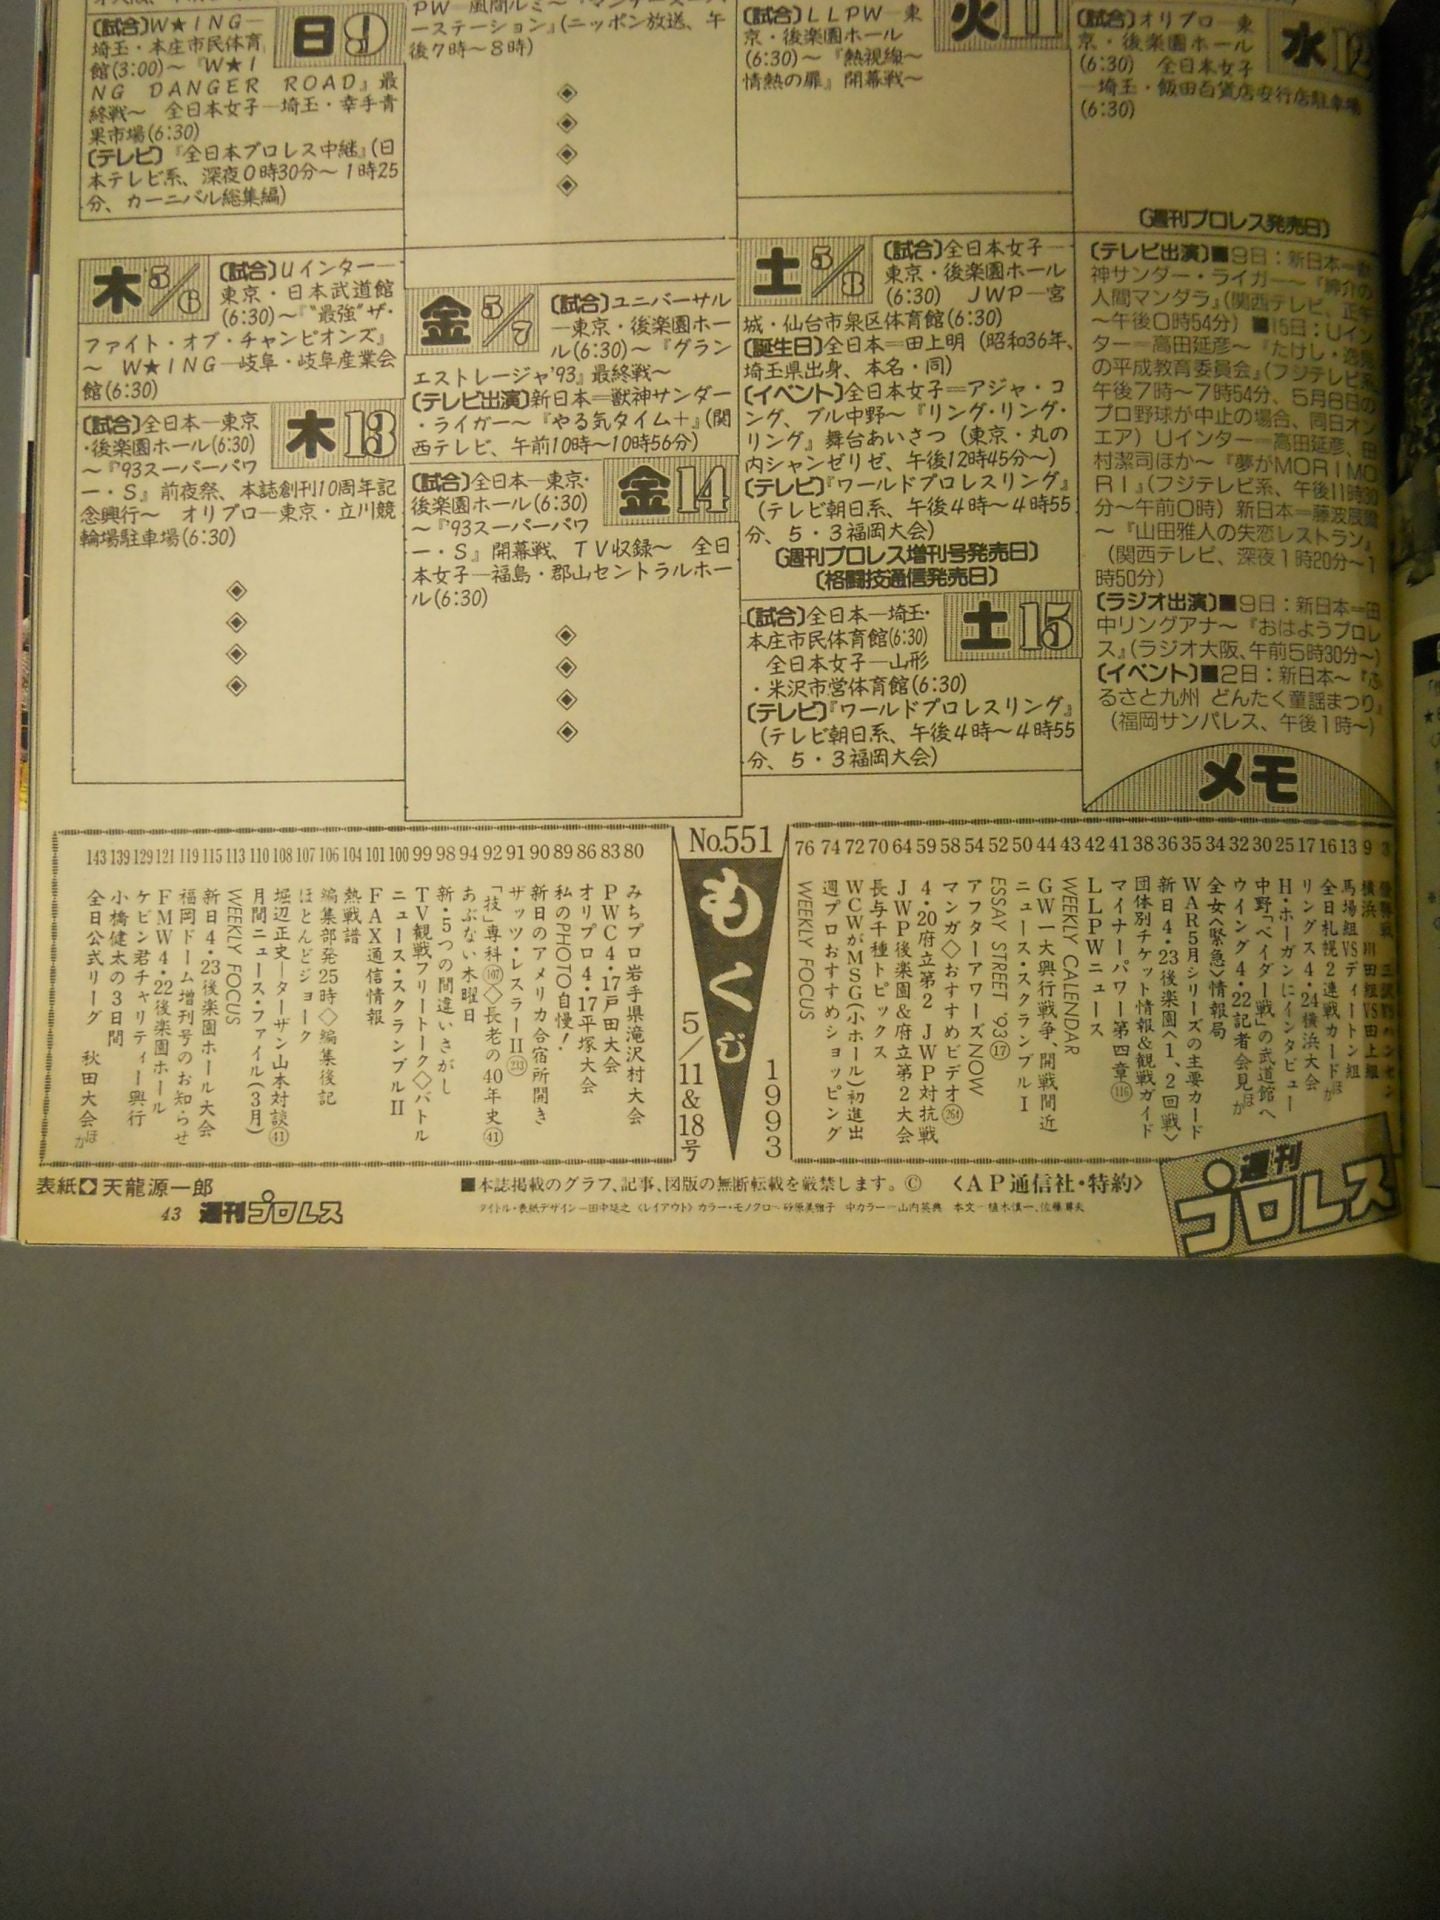 〔試合〕W★ING―
埼玉・本庄市民体育
館(3:00)～『W★I
NG DANGER ROAD』最
終戦～ 全日本女子―埼玉・幸手青
果市場(6:30)
〔テレビ〕『全日本プロレス中継』(日
本テレビ系、深夜0時30分～1時25
分、カーニバル総集編)
日9
ーステーション』(ニッポン放送、午
後7時～8時)
◈
◈
◈
◈
〔試合〕LLPW―東
京・後楽園ホール
(6:30)～『熱視線～
情熱の扉』開幕戦～
火11
〔試合〕オリプロ―東
京・後楽園ホール
(6:30) 全日本女子
―埼玉・飯田百貨店安行店駐車場
(6:30)
水12
〔週刊プロレス発売日〕
木5/6
〔試合〕Uインター―
東京・日本武道館
(6:30)～『“最強”ザ・
ファイト・オブ・チャンピオンズ』
～ W★ING―岐阜・岐阜産業会
館(6:30)
〔試合〕全日本―東京
・後楽園ホール(6:30)
～『'93スーパーパワ
ー・S』前夜祭、本誌創刊10周年記
念興行～ オリプロ―東京・立川競
輪場駐車場(6:30)
木13
◈
◈
◈
◈
金5/7
〔試合〕ユニバーサル
―東京・後楽園ホー
ル(6:30)～『グラン
エストレージャ'93』最終戦～
〔テレビ出演〕新日本=獣神サンダー
・ライガー～『やる気タイム+』(関
西テレビ、午前10時～10時56分)
〔試合〕全日本―東京・
後楽園ホール(6:30)
～『'93スーパーパワ
ー・S』開幕戦、TV収録～ 全日
本女子―福島・郡山セントラルホー
ル(6:30)
金14
◈
◈
◈
◈
土5/8
〔試合〕全日本女子―
東京・後楽園ホール
(6:30) JWP―宮
城・仙台市泉区体育館(6:30)
〔誕生日〕全日本=田上明(昭和36年、
埼玉県出身、本名・同)
〔イベント〕全日本女子=アジャ・コ
ング、ブル中野～『リング・リング・
リング』舞台あいさつ(東京・丸の
内シャンゼリゼ、午後12時45分～)
〔テレビ〕『ワールドプロレスリング』
(テレビ朝日系、午後4時～4時55
分、5・3福岡大会)
〔週刊プロレス増刊号発売日〕
〔格闘技通信発売日〕
〔試合〕全日本―埼玉・
本庄市民体育館(6:30)
全日本女子―山形
・米沢市営体育館(6:30)
〔テレビ〕『ワールドプロレスリング』
(テレビ朝日系、午後4時～4時55
分、5・3福岡大会)
土15
〔テレビ出演〕■9日:新日本=獣
神サンダー・ライガー～『紳介の
人間マンダラ』(関西テレビ、正午
～午後0時54分)■15日:Uイン
ター=高田延彦～『たけし・逸見
の平成教育委員会』(フジテレビ系、
午後7時～7時54分、5月8日の
プロ野球が中止の場合、同日オン
エア)Uインター=高田延彦、田
村潔司ほか～『夢がMORIMO
RI』(フジテレビ系、午後11時30
分～午前0時)新日本=藤波辰爾
～『山田雅人の失恋レストラン』
(関西テレビ、深夜1時20分～1
時50分)
〔ラジオ出演〕■9日:新日本=田
中リングアナ～『おはようプロレ
ス』(ラジオ大阪、午前5時30分～)
〔イベント〕■2日:新日本～『ふ
るさと九州 どんたく童謡まつり』
(福岡サンパレス、午後1時～)
メモ
No.551
もくじ
1993
5/11&18号
9 横浜 川田組VS田上組
13 馬場組VSディートン組
16 全日札幌2連戦カードほか
17 リングス4・24横浜大会
25 H・ホーガンにインタビュー
30 中野「ベイダー戦」の武道館へ
32 ウイング4・22記者会見ほか
34 全女〈緊急〉情報局
35 WAR5月シリーズの主要カード
36 新日4・23後楽園へ1、2回戦〉
38 団体別チケット情報&観戦ガイド
41 マイナーパワー第四章(116)
42 LLPWニュース
43 WEEKLY CALENDAR
44 GW―大興行戦争、開戦間近
50 ニュース・スクランブルI
52 ESSAY STREET '93(17)
54 アフターアワーズNOW
58 マンガ◇おすすめビデオ(264)
59 4・20府立第2 JWP対抗戦
64 JWP後楽園&府立第2大会
70 長与千種トピックス
72 WCWがMSG(小ホール)初進出
74 週プロおすすめショッピング
76 WEEKLY FOCUS
80 みちプロ岩手県滝沢村大会
83 PWC4・17戸田大会
86 オリプロ4・17平塚大会
89 私のPHOTO自慢!
90 新日のアメリカ合宿所開き
91 ザッツ・レスラーII(233)
92 「技」専科(107)◇長老の40年史(41)
94 あぶない木曜日
98 新・5つの間違いさがし
99 TV観戦フリートーク◇バトル
100 ニュース・スクランブルII
101 FAX通信情報
104 熱戦譜
106 編集部発25時◇編集後記
107 ほとんどジョーク
108 堀辺正史―ターザン山本対談(41)
110 月間ニュース・ファイル(3月)
113 WEEKLY FOCUS
115 新日4・23後楽園ホール大会
119 福岡ドーム増刊号のお知らせ
121 FMW4・22後楽園ホール
129 ケビン君チャリティー興行
139 小橋健太の3日間
143 全日公式リーグ 秋田大会ほか
表紙◆天龍源一郎
■本誌掲載のグラフ、記事、図版の無断転載を厳禁します。© 〈AP通信社・特約〉
43 週刊プロレス
週刊プロレス